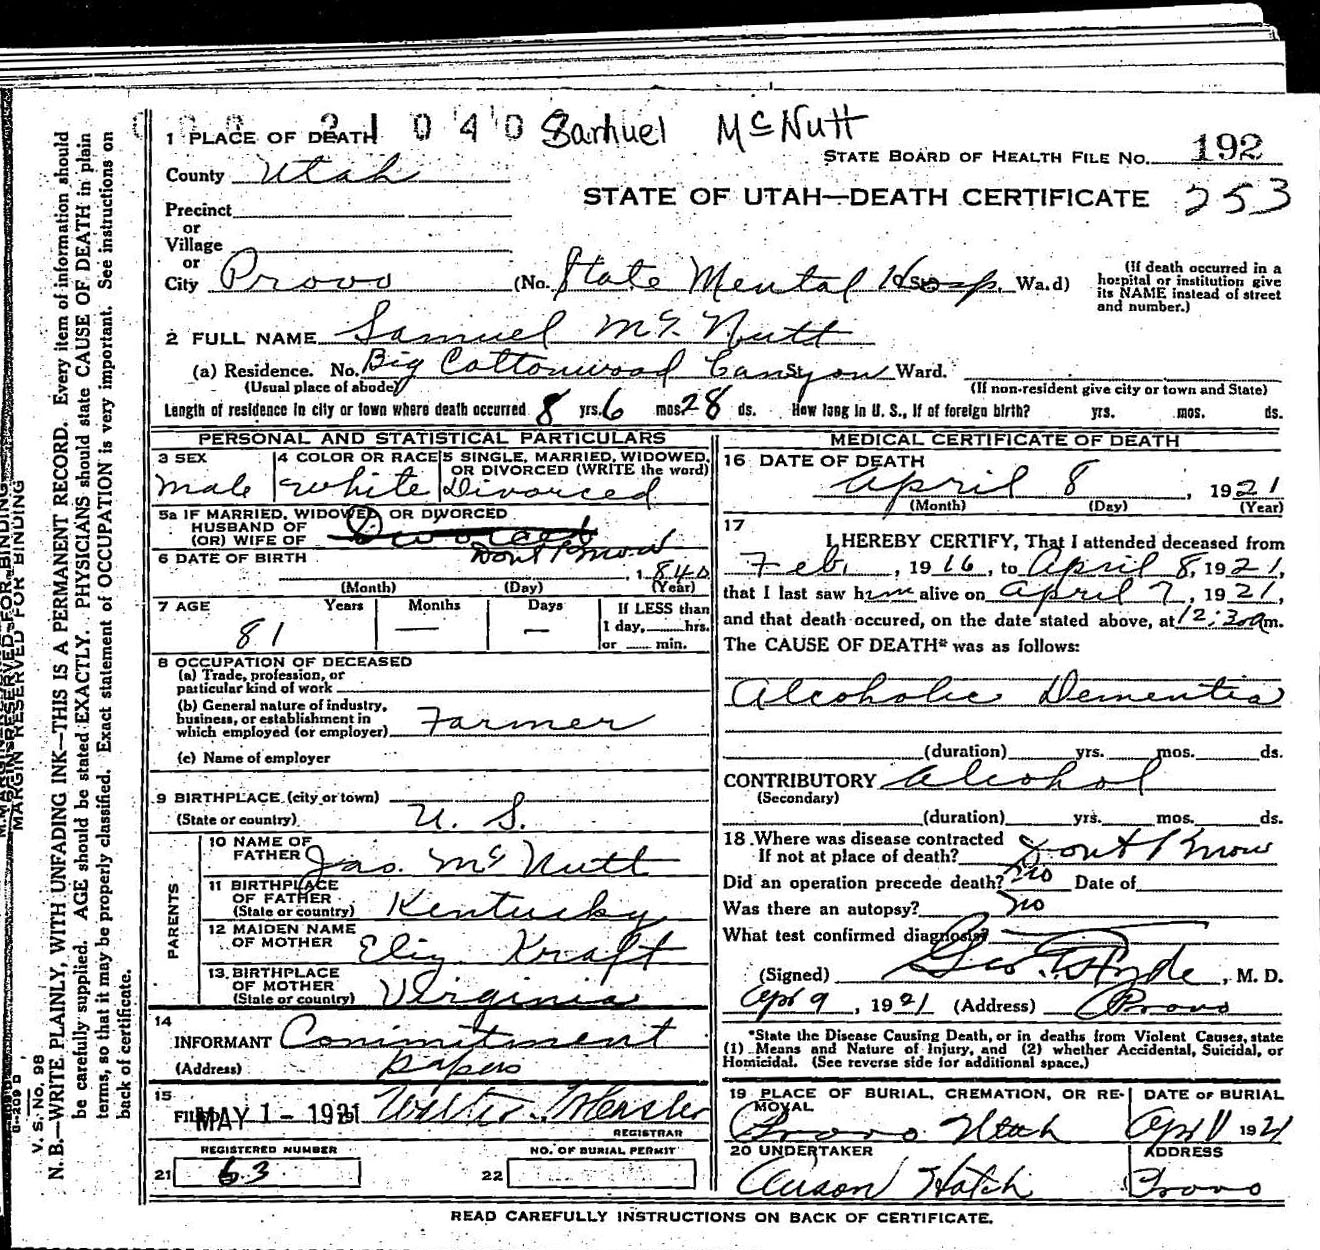 1 PLACE OF DEATH 21040 Samuel McNutt
STATE BOARD OF HEALTH FILE NO. 192
County Utah
STATE OF UTAH—DEATH CERTIFICATE 253
Precinct
or
Village
or
City Provo (No. State Mental Hosp. St. Ward)
(If death occurred in a hospital or institution give its NAME instead of street and number.)
2 FULL NAME Samuel Mc Nutt
(a) Residence. No. Big Cottonwood Canyon St. Ward.
(Usual place of abode) (If non-resident give city or town and State)
Length of residence in city or town where death occurred 8 yrs. 6 mos. 28 ds. How long in U. S., if of foreign birth? yrs. mos. ds.
PERSONAL AND STATISTICAL PARTICULARS
3 SEX 4 COLOR OR RACE 5 SINGLE, MARRIED, WIDOWED, OR DIVORCED (WRITE the word)
Male White Divorced
5a IF MARRIED, WIDOWED OR DIVORCED
HUSBAND OF
(OR) WIFE OF Divorced
6 DATE OF BIRTH Dont Know
, 1840
(Month) (Day) (Year)
7 AGE Years Months Days If LESS than
1 day, hrs.
81 — — or min.
8 OCCUPATION OF DECEASED
(a) Trade, profession, or
particular kind of work
(b) General nature of industry,
business, or establishment in
which employed (or employer) Farmer
(c) Name of employer
9 BIRTHPLACE (city or town)
(State or country) U. S.
PARENTS
10 NAME OF
FATHER Jas. Mc Nutt
11 BIRTHPLACE
OF FATHER
(State or country) Kentucky
12 MAIDEN NAME
OF MOTHER Eliz Kraft
13 BIRTHPLACE
OF MOTHER
(State or country) Virginia
14
INFORMANT Commitment
(Address) papers
15
FILED MAY 1 - 1921 Walter
REGISTRAR
REGISTERED NUMBER NO. OF BURIAL PERMIT
21 63 22
MEDICAL CERTIFICATE OF DEATH
16 DATE OF DEATH
April 8, 1921
(Month) (Day) (Year)
17
I HEREBY CERTIFY, That I attended deceased from
Feb. , 1916, to April 8, 1921,
that I last saw him alive on April 7, 1921,
and that death occured, on the date stated above, at 12:30 am.
The CAUSE OF DEATH* was as follows:
Alcoholic Dementia
(duration) yrs. mos. ds.
CONTRIBUTORY Alcohol
(Secondary)
(duration) yrs. mos. ds.
18 Where was disease contracted
If not at place of death? Dont Know
Did an operation precede death? No Date of
Was there an autopsy? No
What test confirmed diagnosis?
(Signed) Geo. E. Hyde, M. D.
Apr 9, 1921 (Address) Provo
*State the Disease Causing Death, or in deaths from Violent Causes, state
(1) Means and Nature of Injury, and (2) whether Accidental, Suicidal, or
Homicidal. (See reverse side for additional space.)
19 PLACE OF BURIAL, CREMATION, OR RE- DATE OF BURIAL
MOVAL
Provo Utah Apr 11 1921
20 UNDERTAKER ADDRESS
Anson Hatch Provo
READ CAREFULLY INSTRUCTIONS ON BACK OF CERTIFICATE.
MARGIN RESERVED FOR BINDING
V. S. No. 98
N. B.—WRITE PLAINLY, WITH UNFADING INK—THIS IS A PERMANENT RECORD. Every item of information should
be carefully supplied. AGE should be stated EXACTLY. PHYSICIANS should state CAUSE OF DEATH in plain
terms, so that it may be properly classified. Exact statement of OCCUPATION is very important. See instructions on
back of certificate.